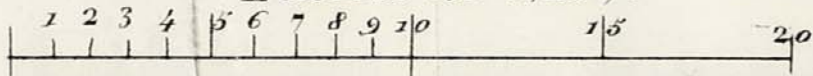 1 2 3 4 5 6 7 8 9 10 15 20